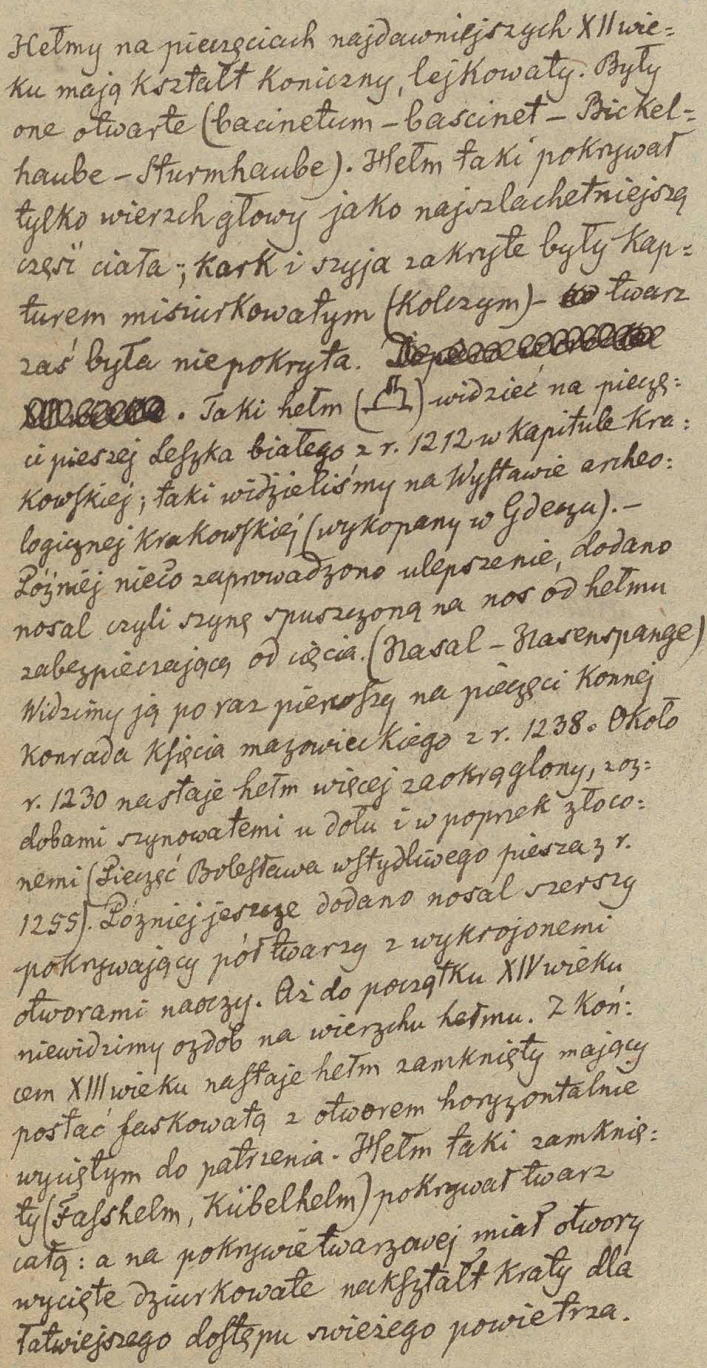 Hełmy na pieczęciach najdawniejszych XII wie=
ku mają kształt koniczny, lejkowaty. Były
one otwarte (bacinetum – bascinet – Bickel=
haube – Sturmhaube). Hełm taki pokrywał
tylko wierzch głowy jako najszlachetniejszą
część ciała; kark i szyja zakryte były kap=
turem misiurkowatym (Kolczym) – twarz
zaś była niepokryta.
. Taki hełm ( ) widzieć na pieczę=
ci pieszej Leszka białego z r. 1212 w kapitule Kra=
kowskiej; taki widzieliśmy na Wystawie archeo=
logicznej Krakowskiej (wykopany w Gdeczu). –
Później nieco zaprowadzono ulepszenie, dodano
nosal czyli szynę spuszczoną na nos od hełmu
zabezpieczającą od cięcia. (Nasal – Nasenspange)
Widzimy ją po raz pierwszy na pieczęci Konnej
Konrada Księcia mazowieckiego z r. 1238. Około
r. 1230 nastaje hełm więcej zaokrąglony, z oz=
dobami szynowatemi u dołu i w poprzek złoco=
nemi (Pieczęć Bolesława wstydliwego piesza z r.
1255). Później jeszcze dodano nosal szerszy
pokrywający pół twarzy z wykrojonemi
otworami na oczy. Aż do początku XIV wieku
niewidzimy ozdob na wierzchu hełmu. Z Koń=
cem XIII wieku nastaje hełm zamknięty mający
postać faskowatą z otworem horyzontalnie
wyciętym do patrzenia. Hełm taki zamknię=
ty (Fasshelm, Kübelhelm) pokrywał twarz
całą: a na pokrywie twarzowej miał otwory
wycięte dziurkowate nakształt kraty dla
łatwiejszego dostępu swieżego powietrza.